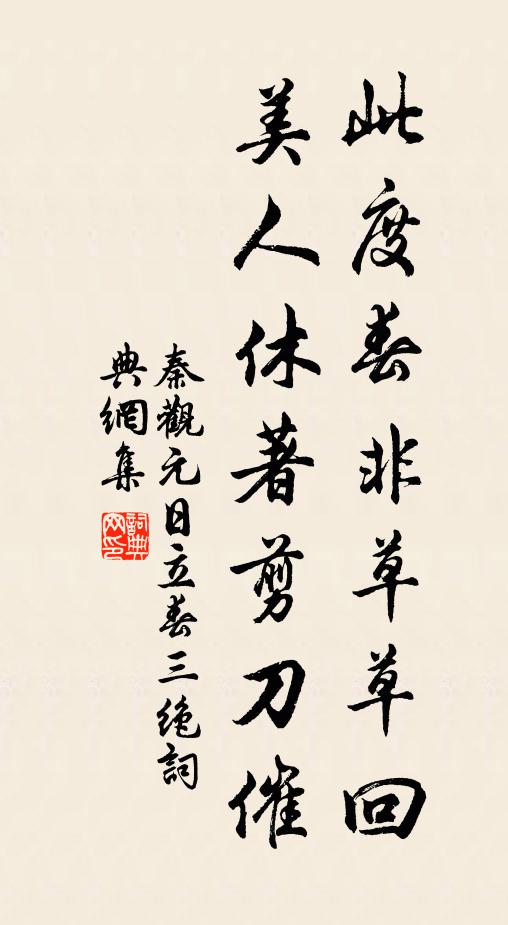 此度春非草草回
美人休著剪刀催
秦觀元日立春三绝詞
典網集
詞典
网印